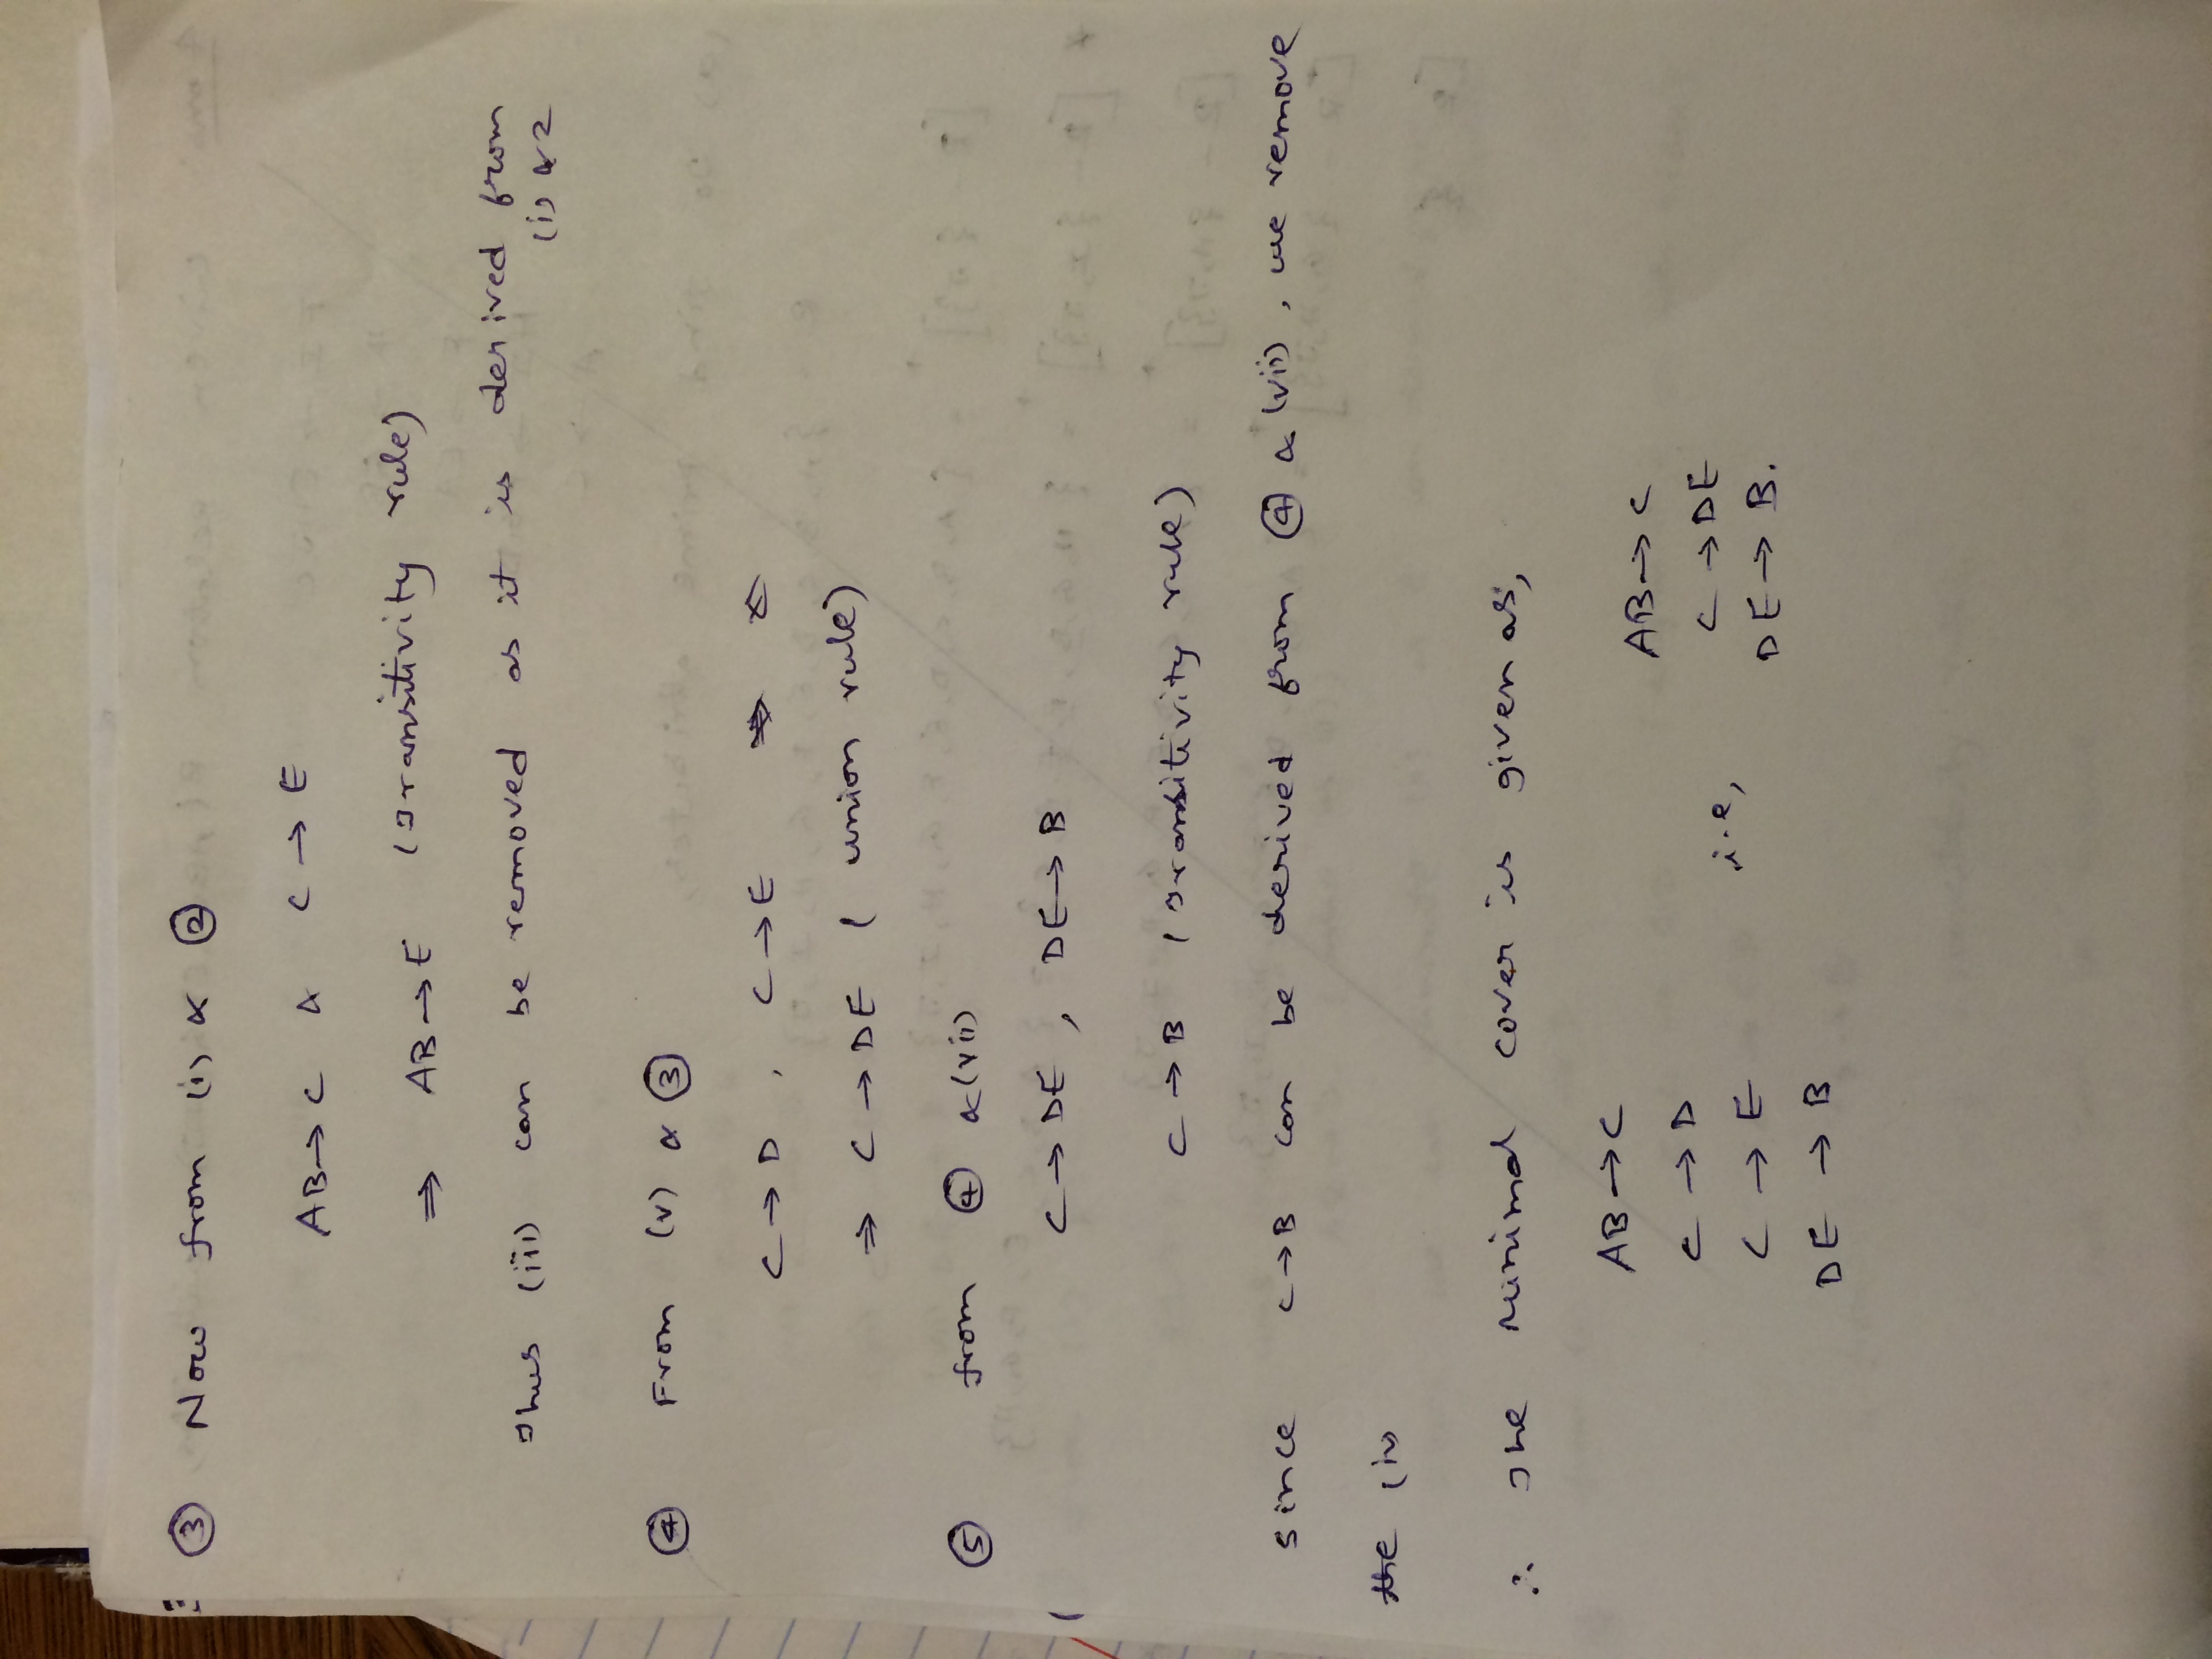 ③ Now from (i) & ②
AB→C & C→E
⇒ AB→E (Transitivity rule)
Thus (iii) can be removed as it is derived from
(i) & 2
④ From (v) & ③
C→D , C→E
⇒ C→DE ( union rule)
⑤ from ④ & (vii)
C→DE , DE→B
C→B (Transitivity rule)
since C→B can be derived from ④ & (vii), we remove
the (iv)
∴ The minimal cover is given as,
AB→C
C→D
C→E
DE→B
i.e,
AB→C
C→DE
DE→B.